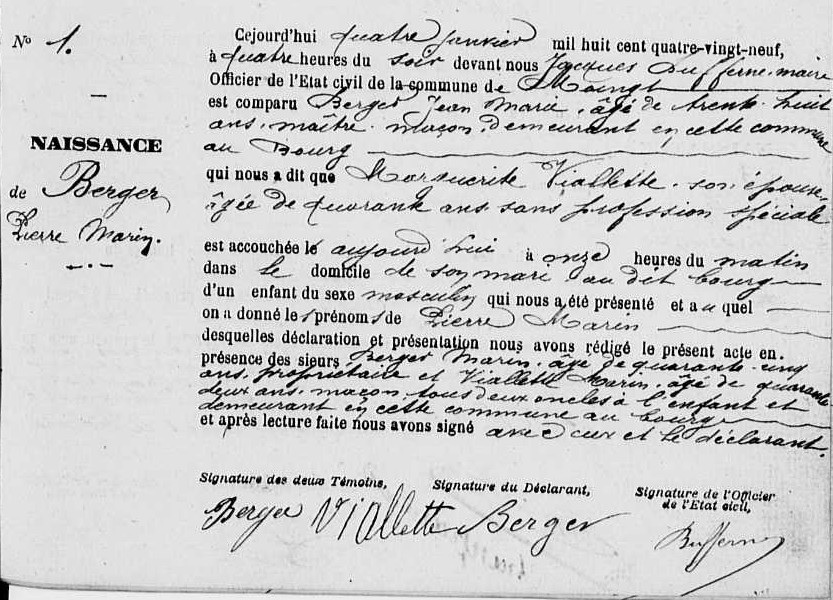 N° 1.
NAISSANCE
de Berger
Pierre Marin.
Cejourd'hui quatre janvier mil huit cent quatre-vingt-neuf,
à quatre heures du soir devant nous Jacques Dufferne, maire
Officier de l'Etat civil de la commune de Moingt
est comparu Berger Jean Marie, âgé de trente-huit
ans, maître-maçon, demeurant en cette commune
au Bourg
qui nous a dit que Marguerite Viallette, son épouse,
âgée de quarante ans sans profession spéciale
est accouchée le aujourd'hui à onze heures du matin
dans le domicile de son mari au dit bourg
d'un enfant du sexe masculin qui nous a été présenté et au quel
on a donné les prénoms de Pierre Marin
desquelles déclaration et présentation nous avons rédigé le présent acte en
présence des sieurs Berger Marin, âgé de quarante-cinq
ans, propriétaire et Viallette Marin, âgé de quarante-
deux ans, maçon, tous deux oncles à l'enfant et
demeurant en cette commune au bourg
et après lecture faite nous avons signé avec eux et le déclarant.
Signature des deux Témoins,
Signature du Déclarant,
Signature de l'Officier
de l'Etat civil,
Berger Viallette Berger